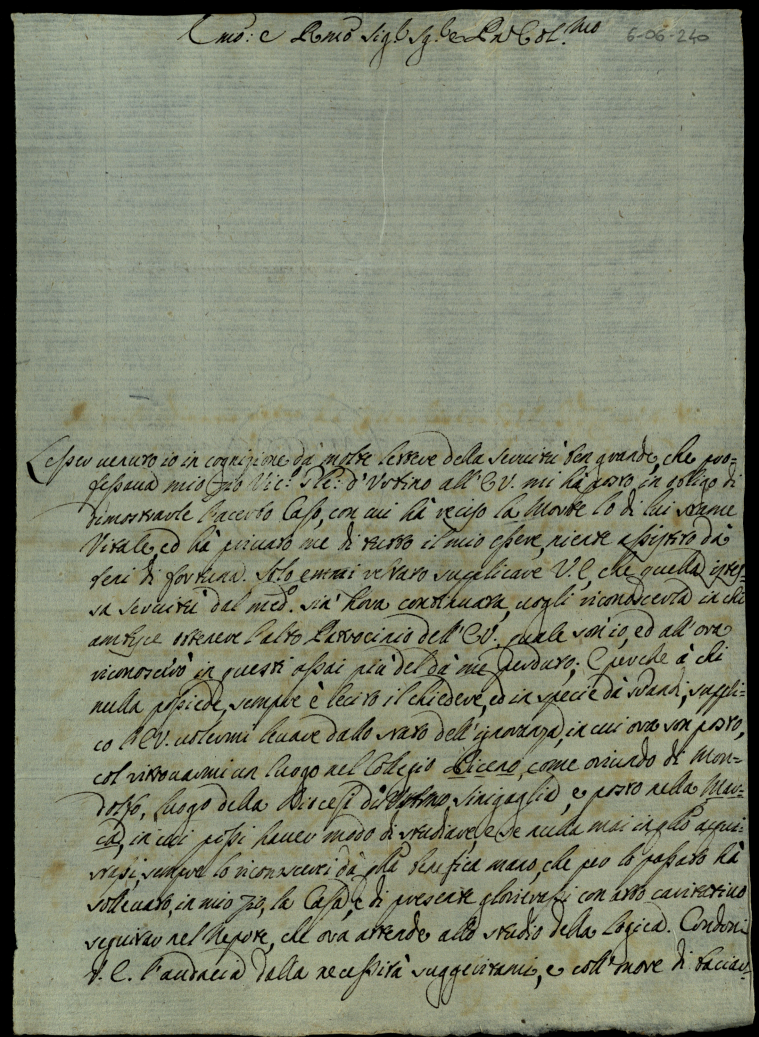 Emo: e Rmo Sigr Sigr e Prn Col.mo
6-06-240
L'esser venuto io in cognizione da molte lettere della servitù ben grande, che pro=
fessava mio Zio Vic: Gle: d'Urbino all'E.V. mi hà posto in obligo di
dimostrarle l'acerbo Caso, con cui hà reciso la Morte lo di lui stame
Vitale, ed hà privato me di tutto il mio essere, niente assistito da
beni di fortuna. supplicare V.E., che quella istes=
sa servitù dal med.o sin'hora continuata, vogli riconoscerla in chi
ambisce ottenere l'alto Patrocinio dell'E.V., quale son'io, ed all'ora
riconoscerò in questi assai più del da me perduto; E perche à chi
nulla possiede, sempre è lecito il chiedere, ed in specie dà Grandi, suppli=
co l'E.V. volermi levare dallo stato dell'ignoranza, in cui ora son posto,
col ritrovarmi un luogo nel Collegio Piceno, come oriundo di Mon=
dolfo, luogo della Diocesi di Sinigaglia, e posto nella Mar=
ca, in cui possi haver modo di studiare, e se nulla mai in esso acqui=
starsi, sempre lo riconoscerò dà mano, che per lo passato hà
sollevato, in mio Zio, la Casa, e di presente gloriarassi con atto caritativo
seguitar nel Nepote, che ora attende allo studio della Logica. Condoni
V.E. l'audacia dalla necessità suggeritami, e coll'onore di baciar=